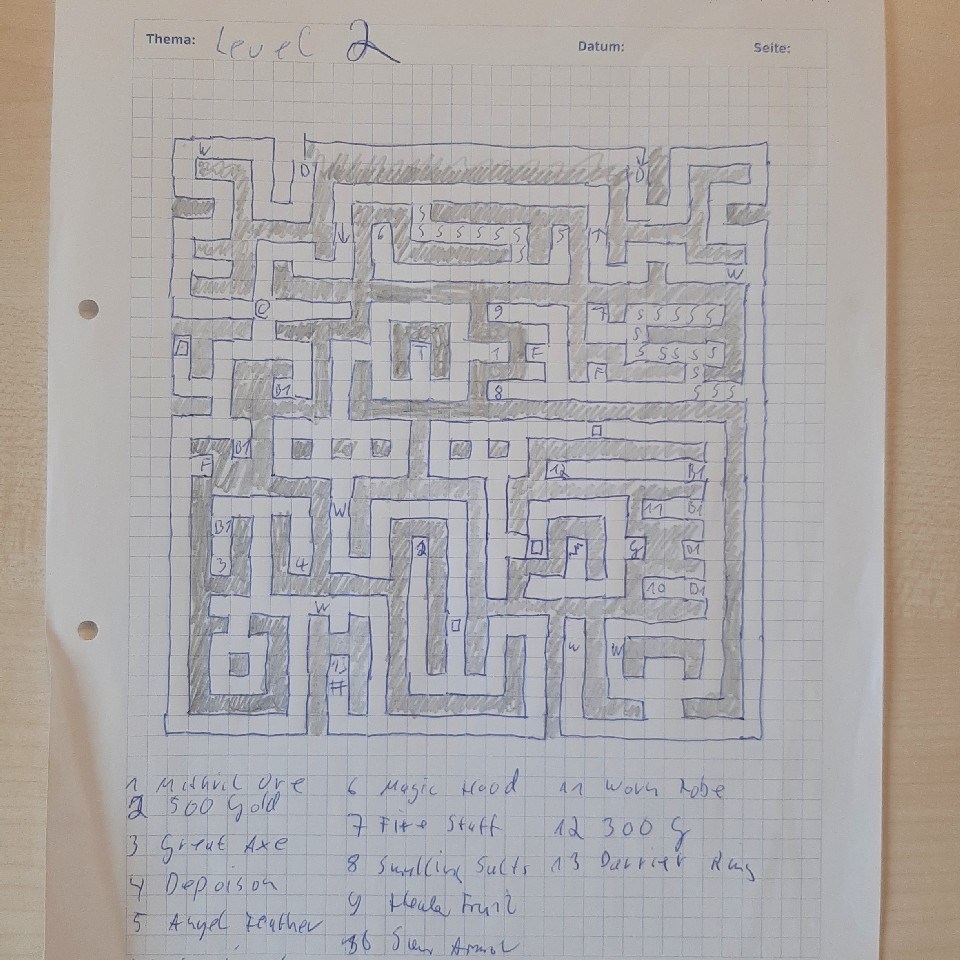 Thema: Level 2 Datum: Seite:
W
D D
S
6 S S S S S S S
S
W
C
9 7 S S S S S
S
1 1 F S S S S S
S
F
B1 8 S S S
B1
F 12 B1
W 11 B1
B1
2 F G D1
3 4 10 D1
W
W W
13
1 Mithril Ore 6 Magic Hood 11 Worn Robe
2 500 Gold
3 Great Axe 7 Fire Staff 12 300 G
4 Depoison 8 Smelling Salts 13 Barrier Ring
5 Angel Feather 9 Healer Fruit